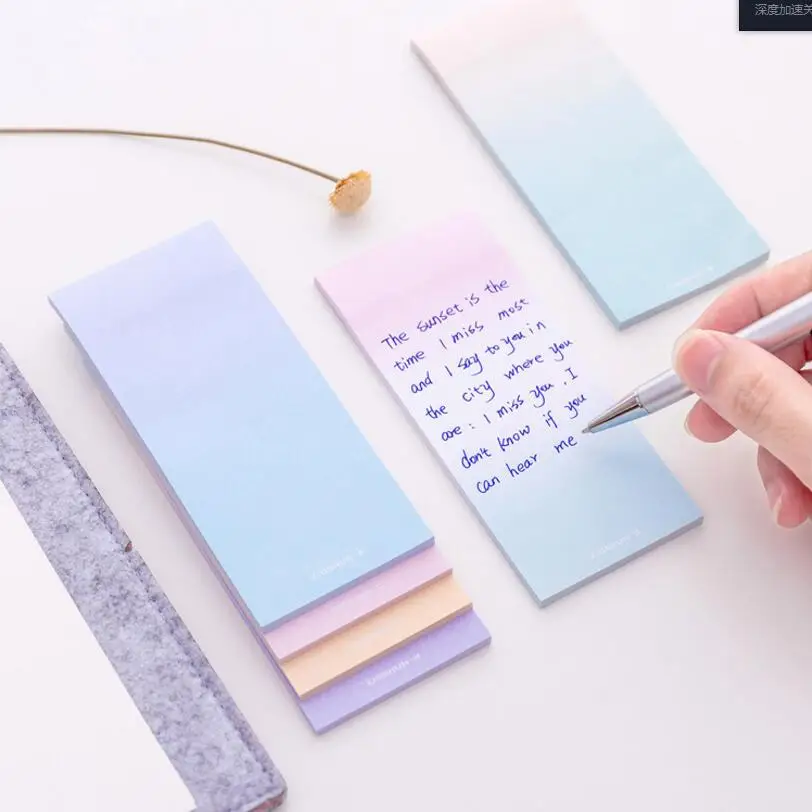 深度加速关
The sunset is the
time I miss most
and I say to you in
the city where you
are : I miss you , I
don't know if you
can hear me